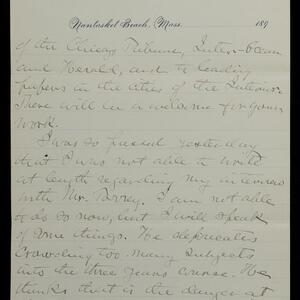 Nantasket Beach, Mass. 189
of the Chicago Tribune, Inter-Ocean
and Herald, and the leading
papers in the cities of the Interior.
There will be a welcome for your
work.
I was so pressed yesterday
that I was not able to write
at length regarding my interview
with Mr. Torrey. I am not able
to do so now, but I will speak
of some things. He deprecates
crowding too many subjects
into the three years course. He
thinks that is the danger at